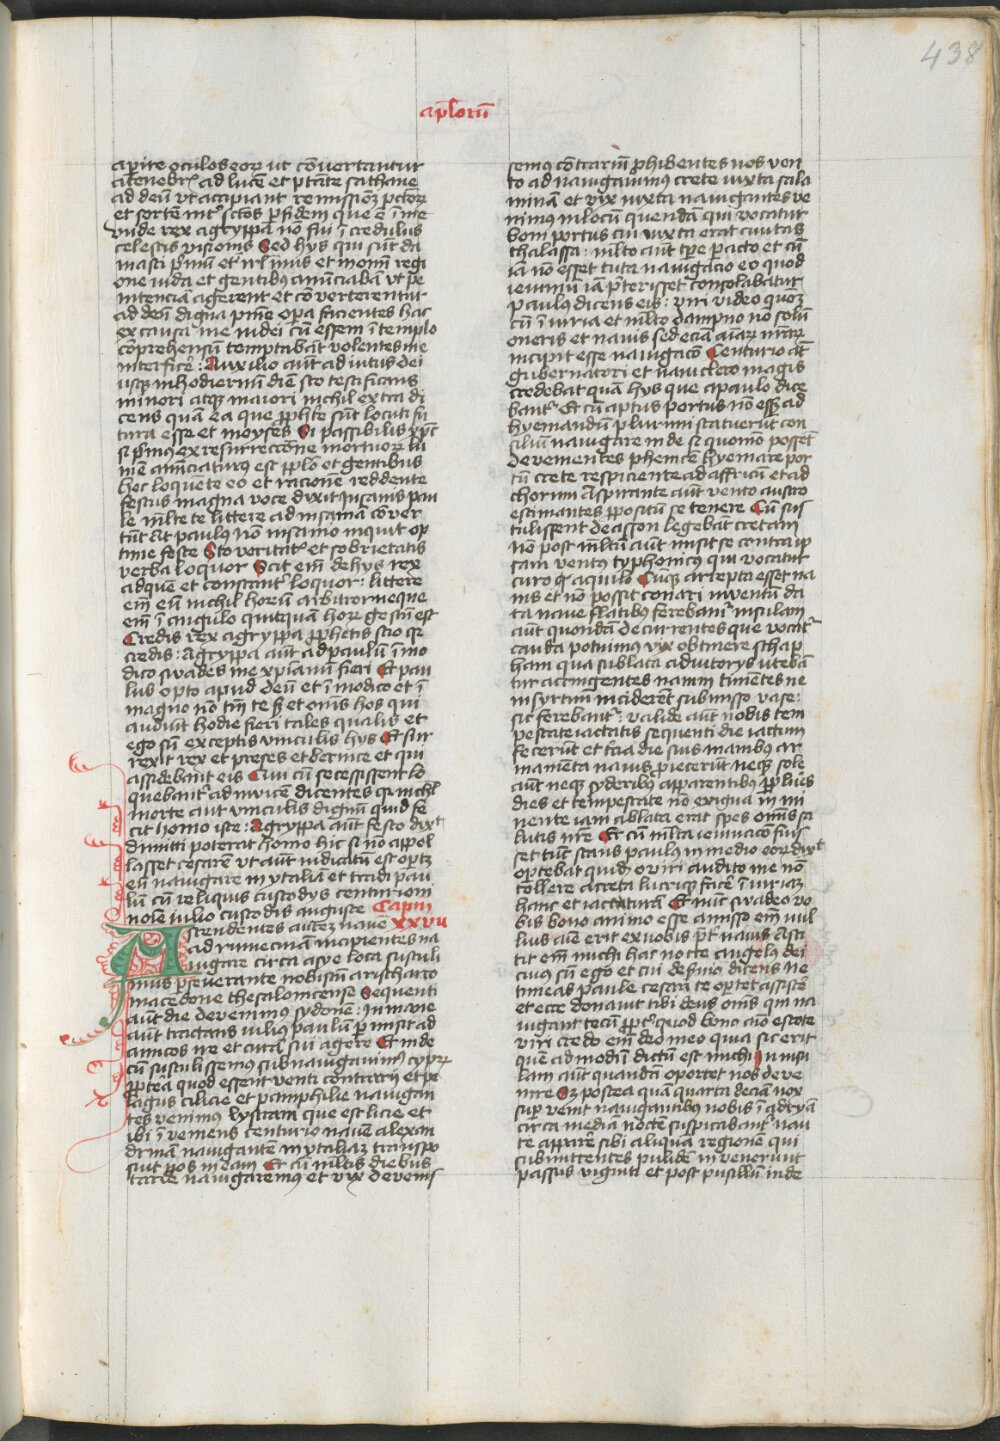 438
apl'orū
aperire oculos eor ut cōvertantur
a tenebr' ad lucē et ptāte sathane
ad deū ut accipiant remissioēz pctōr
et sortē int' sctōs p fidem que ē ī me
vnde rex agryppa nō fui ī credulus
celestis visionis Sed hys qui sūt da
masci pmū et ir'limis et in omni regi
one iuda et gentibus annūciabā ut pe
nitenciā agerent et cōverterentur
ad deū digna pnīe opa facientes hac
ex causa me iudei cū essem ī templo
cōprehensū temptabāt volentes me
interficē : Auxilio aūt adiutus dei
usqz in hodiernū diē sto testificans
minori atqz maiori nichil extra di
cens quā ea que pphete sūt locuti fu
tura esse et moyses Si passibilis xpc
si pmus ex resurrectione mortuor lu
mē annūciaturus est pplo et gentibus
hec loquēte eo et racionē reddente
festus magna voce dixit Insanis pau
le mlte te littere ad insaniā cōver
tūt At paulus nō insanio inquit op
time feste Sed veritat' et sobrietatis
verba loquor Scit em̄ de hys rex
ad quē et constant' loquor : littere
em̄ eū nichil horū arbitror neque
em̄ ī angulo quicquam hor gestū est
Credis rex agryppa pphetis scio qr
credis : Agryppa aūt ad paulū ī mo
dico swades me xpianū fieri Et pau
lus opto apud deū et ī modico et ī
magno nō tm̄ te sz et omīs hos qui
audiūt hodie fieri tales qualis et
ego sū exceptis vinculis hys Et sur
rexit rex et preses et bernice et qui
assidebāt eis Cum cū secessissent lo
quebant' ad invicē dicentes q nichil
morte aut vinculis dignū quid fe
cit homo iste : Agryppa aūt festo dixt
dimitti poterat homo hic si nō appel
lasset cesarē ut aūt iudicatū est optz
eū navigare in ytaliā et tradi pau
lū cū reliquis custodys centurioni
noīe iulio custodis auguste Capm
xxvii
Ascendentes autez navē
ad rumetinā incipientes na
vigare circa asye loca sustuli
mus pseverante nobiscū aristharco
macedone thesalonicense Sequenti
aūt die devenimus sydonē : Humane
aūt tractans iulius paulū pmisit ad
amicos ire et curā sui agere Et inde
cū sustulissemus subnavigavimus cypr
pptea quod essent venti contrarii et pe
lagus cilicie et pamphilie navigan
tes venimus lystram que est licie et
ibi ī veniens centurio navē alexan
drinā navigantē in ytaliaz transpo
suit nos in eam Et cū mltis diebus
tarde navigaremus et vix deveniſ
semus contrariū phibentes nos ven
to adnavigavimus crete iuxta salo
minam et vix iuxta navigantes ve
nimus in locū quendā qui vocatur
boni portus cui iuxta erat civitas
thalassa : mlto aūt tpe pacto et cū
iā nō esset tuta navigacio eo quod
ieiuniū iā pterisset consolabatur
paulus dicens eis : viri video quoz
cū ī iuria et mlto dampno nō solū
oneris et navis sed eciā aīar nrār
incipit esse navigacō Centurio āt
gubernatori et nauclero magis
credebat quā hys que a paulo dice
bant' Et cū aptus portus nō essz ad
hyemandū plurimi statuerūt con
siliū navigare inde si quomō possēt
devenientes phenicē hyemare por
tū crete respicientē ad affricū et ad
chorum Aspirante aūt vento austro
estimantes ppositū se tenere Cū sus
tulissent de asson legebāt cretam
nō post mltū aūt misit se contra ip
sam ventus typhonicus qui vocatur
euro aquilo Cūqz arrepta esset na
vis et nō possit conari in ventū da
ta nave flatibus ferebamr insulam
aūt quondā decurrentes que vocat'
cauda potuimus vix obtinere schap
ham qua sublata adiutorys utebā
tur accingentes navim timentes ne
in syrtim inciderēt submisso vase :
sic ferebant' : valide aūt nobis tem
pestate iactatis sequenti die iactum
fecerūt et tcia die suis manibus ar
mamēta navis piecerūt neqz sole
aūt neqz syderibus apparentibus p plures
dies et tempestate nō exigua im mi
nente iam ablata erat spes omnis sa
lutis nre Et cū mlta ieiunacō fuis
set tūc stans paulus in medio eor dixt
optebat quidē o viri audito me nō
tollere a creta lucriqz facē ī iuriaz
hanc et iacturā Et nūc swadeo vo
bis bono animo esse amissio em̄ nul
lius aīe erit ex vobis pt' navis Asti
tit em̄ michi hac nocte angelus dei
cuius sū ego et cui deservio dicens Ne
timeas paule cesari te optet assistē
et ecce donavit tibi deus omīs qui na
vigant tecū ppt' quod bono aīo estote
viri credo em̄ deo meo quia sic erit
quē ad modū dictū est michi In insu
lam aūt quandā oportet nos deve
nire Sz postea quā quarta deciā nox
supvenit navigantibus nobis ī adryā
circa mediā noctē suspicabant' nau
te apparē sibi aliquā regionē qui
submittentes pulidē invenerunt
passus viginti et post pusillū inde